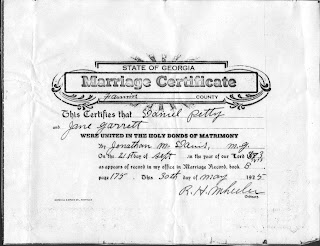 STATE OF GEORGIA
Marriage Certificate
Fannin COUNTY
This Certifies that Daniel Petty
and Jane Garrett
WERE UNITED IN THE HOLY BONDS OF MATRIMONY
By Jonathan M. Davis, M.G.
On the 21st day of Sept in the year of our Lord
as appears of record in my office in Marriage Record, book
page 175. This 30th day of May 1925
R. H. Wheeler
Ordinary